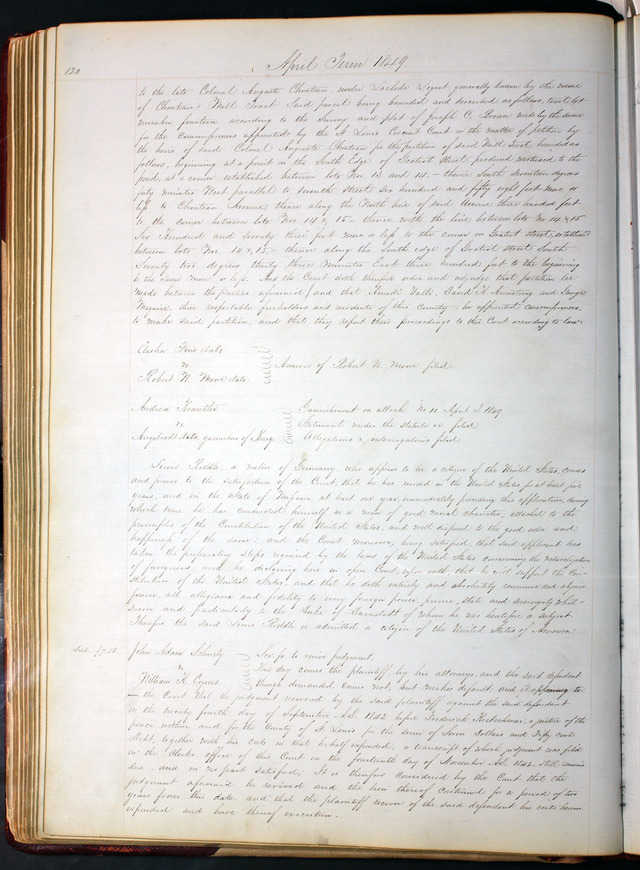 120
April Term 1849
to the late Colonel Auguste Chouteau under Laclede Liguest generally known by the name
of Chouteau's Mill Tract Said parcel being bounded and described as follows, to wit: Lot
number fourteen according to the Survey and plat of Joseph C. Brown made by the same
for the Commissioners appointed by the St Louis Circuit Court in the matter of petition by
the heirs of said Colonel Auguste Chouteau for the partition of said Mill Tract bounded as
follows, beginning at a point in the South Edge of Gratiot Street produced westward to the
pond, at a corner established between lots Nos 13 and 14 - thence South Seventeen degrees
forty minutes West parallel to Seventh Street Six hundred and fifty eight feet more or
less to Chouteau Avenue, thence along the North line of said Avenue three hundred feet
to the corner between lots Nos 14 & 15 - thence with the line between lots No 14 & 15
Six Hundred and seventy three feet more or less to the corner on Gratiot Street, established
between lots Nos. 14 & 15 - thence along the South edge of Gratiot Street South
Seventy two degrees thirty three Minutes East three hundred feet to the beginning
be the same more or less. And the Court doth therefore order and adjudge that partition be
made between the parties aforesaid, and that Amedé Vallé, David H Armstrong and George
Maguire, three respectable freeholders and residents of this County, be appointed commissioners,
to make said partition, and that they report their proceedings to this Court according to law
vs
Robert N. Moore et als
Answer of Robert N. Moore filed
Andrew
vs
garnishee of
Garnishment on attach No 10 April T. 1849
Statement under the statute is filed
Allegations & interrogatories filed
Lewis Riddle, a native of Germany, who applies to be a citizen of the United States, comes
and proves to the satisfaction of the Court, that he has resided in the United States for at least five
years, and in the State of Missouri at least one year, immediately preceding this application, during
which time he has conducted himself as a man of good moral character, attached to the
principles of the Constitution of the United States, and well disposed to the good order and
happiness of the same: and the Court moreover, being satisfied, that said applicant has
taken the preparatory steps required by the laws of the United States concerning the naturalization
of foreigners, and he declaring here in open Court, upon oath that he will support the Con-
stitution of the United States, and that he doth entirely and absolutely renounce and abjure
forever all allegiance and fidelity to every foreign power, prince, state and sovereignty what-
soever and particularly to the Duke of Darmstadt of whom he was heretofore a subject.
Therefore the said Lewis Riddle is admitted a citizen of the United States of America.
John Adam Schmitz
vs
William H. Cozens
Sci. fa. to revive judgment.
This day comes the plaintiff by his attorneys, and the said defendant
though demanded, comes not, but makes default, and it appearing to
the Court that the judgment recovered by the said plaintiff against the said defendant
on the twenty fourth day of September A.D. 1842 before Frederick Kretschmar, a justice of the
peace within and for the County of St Louis for the sum of Seven Dollars and Fifty cents
debt, together with his costs in that behalf expended, a transcript of which judgment was filed
in the Clerks office of this Court on the fourteenth day of November A.D. 1842, still remains
due, and in no part satisfied, It is therefore Considered by the Court that the
judgment aforesaid be revived and the lien thereof continued for a period of two
years from this date and that the plaintiff recover of the said defendant his costs herein
expended and have thereof execution.